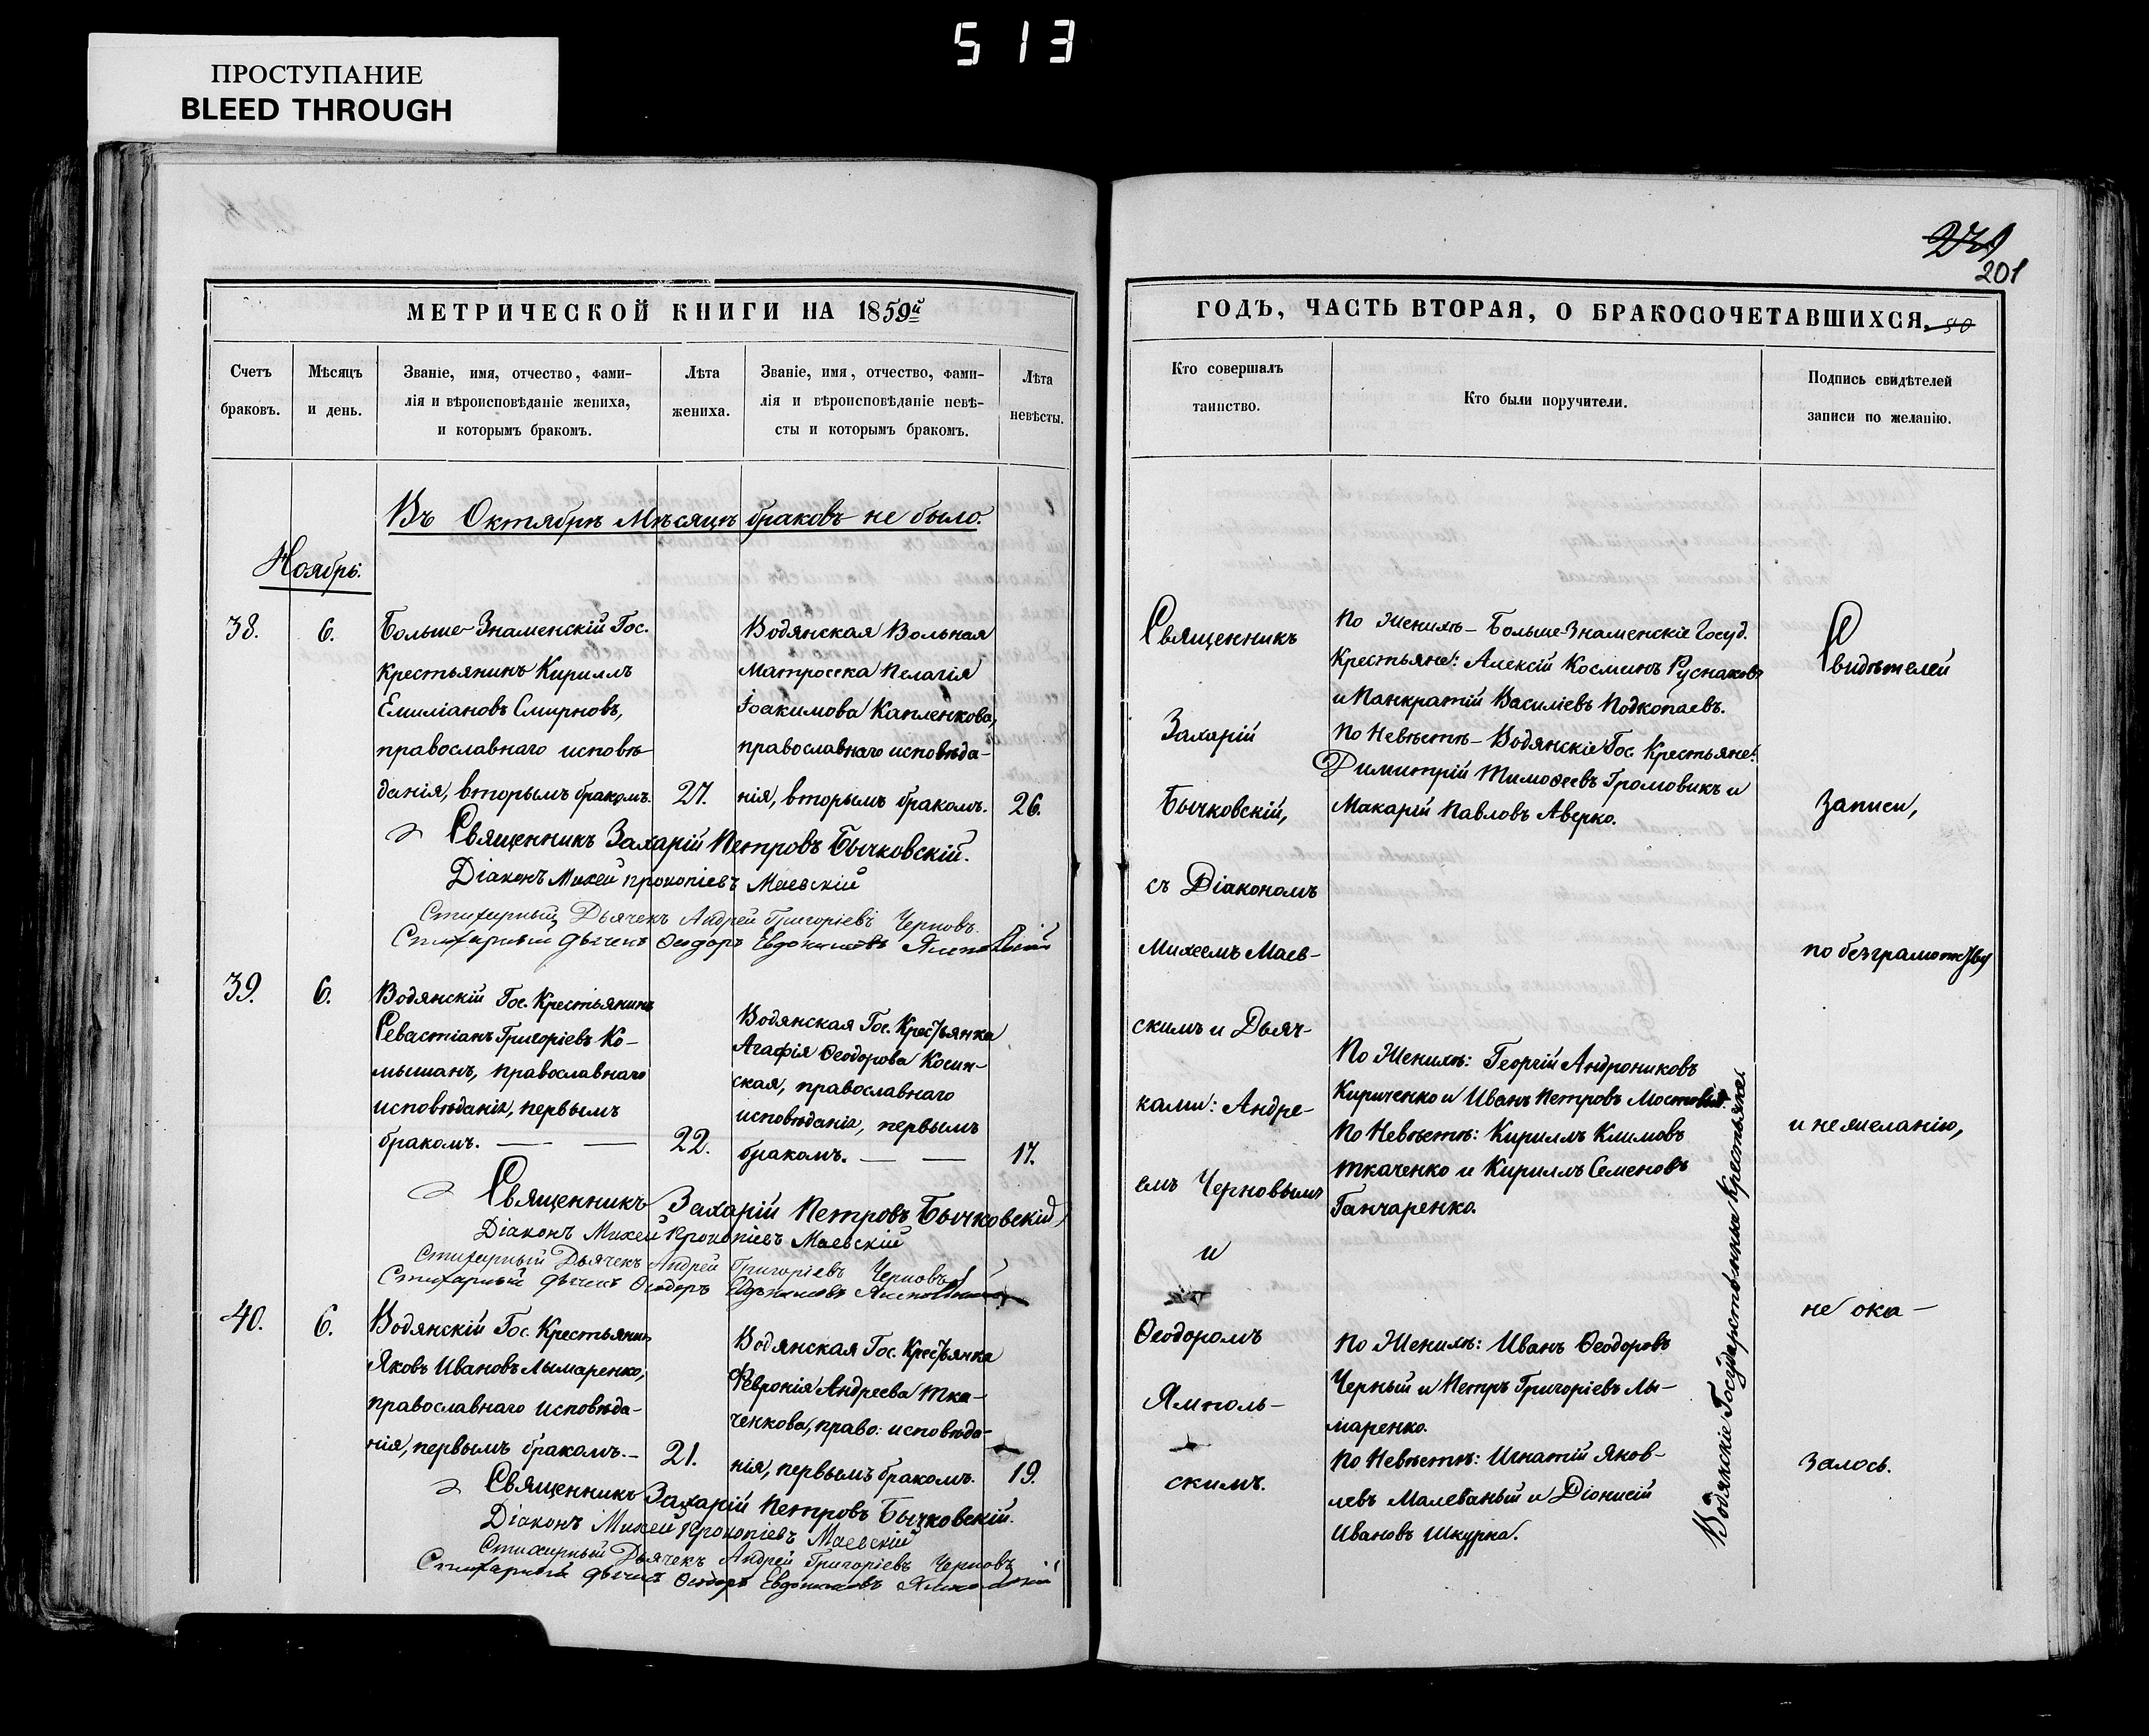 513
ПРОСТУПАНИЕ
BLEED THROUGH
201
МЕТРИЧЕСКОЙ КНИГИ НА 1859й
Счетъ браковъ.
Мѣсяцъ и день.
Званіе, имя, отчество, фами-
лія и вѣроисповѣданіе жениха,
и которымъ бракомъ.
Лѣта жениха.
Званіе, имя, отчество, фами-
лія и вѣроисповѣданіе невѣ-
сты и которымъ бракомъ.
Лѣта невѣсты.
Въ Октябрѣ Мѣсяцѣ браковъ не было.
Ноябрь:
38.
6.
Больше-Знаменскій Гос.
Крестьянинъ Кириллъ
Емиліановъ Смирновъ,
православнаго исповѣ-
данія, вторымъ бракомъ.
27.
Водянская Вольная
Матросска Пелагія
Іоакимова Капленкова,
православнаго исповѣда-
нія, вторымъ бракомъ.
26.
Священникъ Захарій Петровъ Бычковскій.
Діаконъ Михей Прокопіевъ Маевскій
Стихарный Дьячекъ Андрей Григоріевъ Черновъ
Стихарный Дьячекъ Ѳеодоръ Евдокимовъ Ямпольскій
39.
6.
Водянскій Гос. Крестьянинъ
Севастіанъ Григоріевъ Ко-
мышанъ, православнаго
исповѣданія, первымъ
бракомъ. — —
22.
Водянская Гос. Крестьянка
Агафія Ѳеодорова Косин-
ская, православнаго
исповѣданія, первымъ
бракомъ. — —
17.
Священникъ Захарій Петровъ Бычковскій
Діаконъ Михей Прокопіевъ Маевскій
Стихарный Дьячекъ Андрей Григоріевъ Черновъ
Стихарный Дьячекъ Ѳеодоръ Евдокимовъ Ямпольскій
40.
6.
Водянскій Гос. Крестьянинъ
Яковъ Ивановъ Лымаренко,
православнаго исповѣда-
нія, первымъ бракомъ.-
21.
Водянская Гос. Крестьянка
Февронія Андреева Тка-
ченкова, право: исповѣда-
нія, первымъ бракомъ.
19.
Священникъ Захарій Петровъ Бычковскій.
Діаконъ Михей Прокопіевъ Маевскій
Стихарный Дьячекъ Андрей Григоріевъ Черновъ
Стихарный Дьячекъ Ѳеодоръ Евдокимовъ Ямпольскій
ГОДЪ, ЧАСТЬ ВТОРАЯ, О БРАКОСОЧЕТАВШИХСЯ.
Кто совершалъ
таинство.
Кто были поручители.
Подпись свидѣтелей
записи по желанію.
Священникъ
Захарій
Бычковскій,
съ Діакономъ
Михеемъ Маев-
скимъ и Дьяч-
ками: Андре-
емъ Черновымъ
и
Ѳеодоромъ
Ямполь-
скимъ.
По Женихѣ - Больше-Знаменскіе Госуд.
Крестьяне: Алексій Косминъ Руснаковъ
и Панкратій Василіевъ Подкопаевъ.
По Невѣстѣ - Водянскіе Гос. Крестьяне:
Димитрій Тимоѳеевъ Громовикъ и
Макарій Павловъ Аверко.
По Женихѣ: Георгій Андрониковъ
Кириченко и Иванъ Петровъ Мостовый.
По Невѣстѣ: Кириллъ Климовъ
Ткаченко и Кириллъ Семеновъ
Ганчаренко.
По Женихѣ: Иванъ Ѳеодоровъ
Черный и Петръ Григоріевъ Лы-
маренко.
По Невѣстѣ: Игнатій Яков-
левъ Малеваный и Діонисій
Ивановъ Шкурка.
Водянскіе Государственные Крестьяне.
Свидѣтелей
записи,
по безграмотству
и нежеланію,
не ока-
залось.